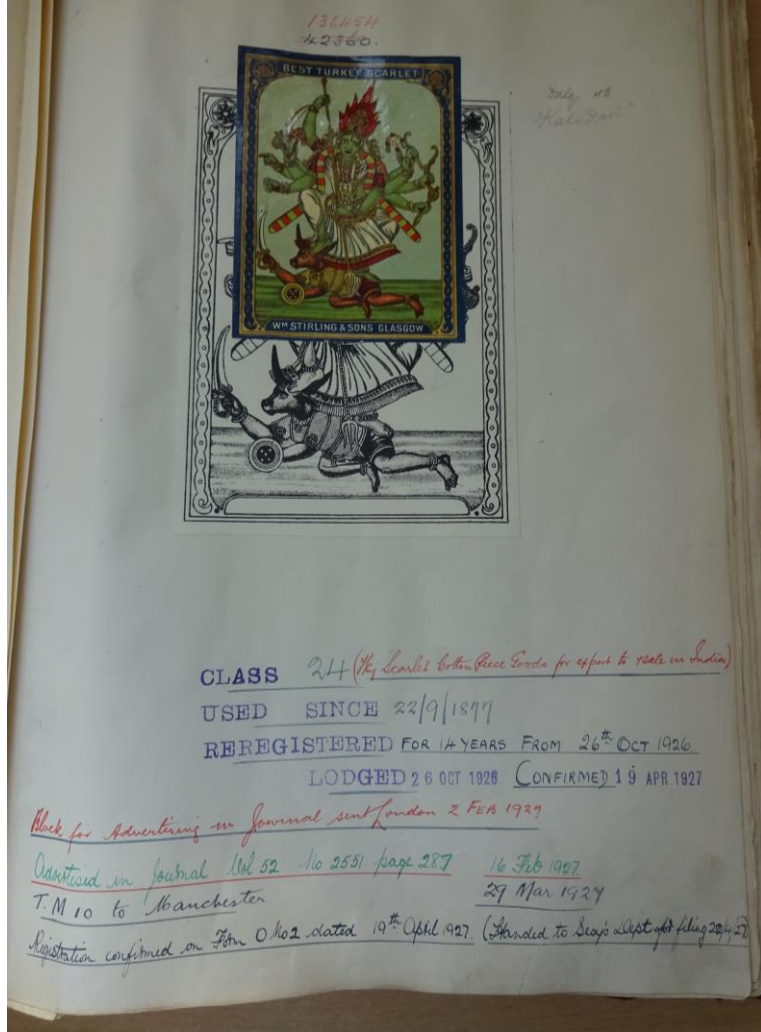 136454
42360.
BEST TURKEY SCARLET
WM STIRLING & SONS GLASGOW
"Kali Devi"
CLASS 24 (Tky Scarlet Cotton Piece Goods for export to & sale in India)
USED SINCE 22/9/1877
REREGISTERED FOR 14 YEARS FROM 26th OCT 1926
LODGED 26 OCT 1926 CONFIRMED 19 APR 1927
Block for Advertising in Journal sent London 2 FEB 1927
Advertised in Journal Vol 52 No 2551 page 287 16 Feb 1927.
T.M 10 to Manchester 29 Mar 1927
Registration confirmed on Form O No2 dated 19th April 1927. (Handed to Seaps Dept for filing 20/4/27